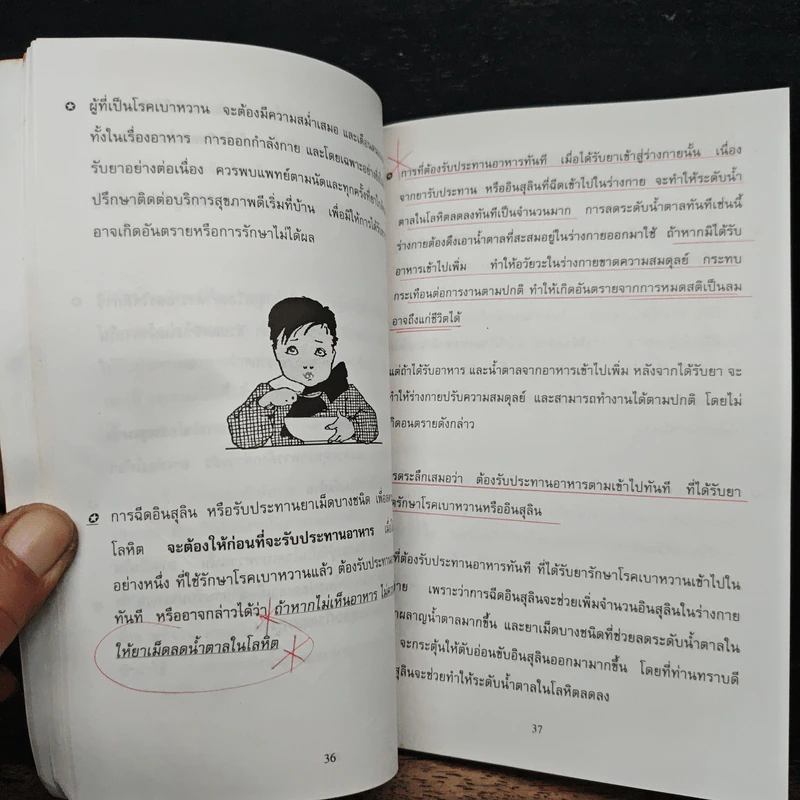 ผู้ที่เป็นโรคเบาหวาน จะต้องมีความสม่ำเสมอ
ทั้งในเรื่องอาหาร การออกกำลังกาย และโดยเฉพาะอย่าง
รับยาอย่างต่อเนื่อง ควรพบแพทย์ตามนัดและทุกครั้ง
ปรึกษาติดต่อบริการสุขภาพดีเริ่มที่บ้าน เพื่อมิให้การได้
อาจเกิดอันตรายหรือการรักษาไม่ได้ผล
การฉีดอินสุลิน หรือรับประทานยาเม็ดบางชนิด
โลหิต จะต้องให้ก่อนที่จะรับประทานอาหาร
อย่างหนึ่ง ที่ใช้รักษาโรคเบาหวานแล้ว ต้องรับประทาน
ทันที หรืออาจกล่าวได้ว่า ถ้าหากไม่เห็นอาหาร
ให้ยาเม็ดลดน้ำตาลในโลหิต
36
การที่ต้องรับประทานอาหารทันที เมื่อได้รับยาเข้าสู่ร่างกายนั้น เนื่อง
จากยารับประทาน หรืออินสุลินที่ฉีดเข้าไปในร่างกาย จะทำให้ระดับน้ำ
ตาลในโลหิตลดลงทันทีเป็นจำนวนมาก การลดระดับน้ำตาลทันทีเช่นนี้
ร่างกายต้องดึงเอาน้ำตาลที่สะสมอยู่ในร่างกายออกมาใช้ ถ้าหากมิได้รับ
อาหารเข้าไปเพิ่ม ทำให้อวัยวะในร่างกายขาดความสมดุลย์ กระทบ
กระเทือนต่อการงานตามปกติ ทำให้เกิดอันตรายจากการหมดสติเป็นลม
อาจถึงแก่ชีวิตได้
แต่ถ้าได้รับอาหาร และน้ำตาลจากอาหารเข้าไปเพิ่ม หลังจากได้รับยา จะ
ทำให้ร่างกายปรับความสมดุลย์ และสามารถทำงานได้ตามปกติ โดยไม่
กิดอนตรายดังกล่าว
รตระลึกเสมอว่า ต้องรับประทานอาหารตามเข้าไปทันที ที่ได้รับยา
รักษาโรคเบาหวานหรืออินสุลิน
ที่ต้องรับประทานอาหารทันที ที่ได้รับยารักษาโรคเบาหวานเข้าไปใน
กาย เพราะว่าการฉีดอินสุลินจะช่วยเพิ่มจำนวนอินสุลินในร่างกาย
ผลาญน้ำตาลมากขึ้น และยาเม็ดบางชนิดที่ช่วยลดระดับน้ำตาลใน
จะกระตุ้นให้ตับอ่อนขับอินสุลินออกมามากขึ้น โดยที่ท่านทราบดี
สุลินจะช่วยทำให้ระดับน้ำตาลในโลหิตลดลง
37